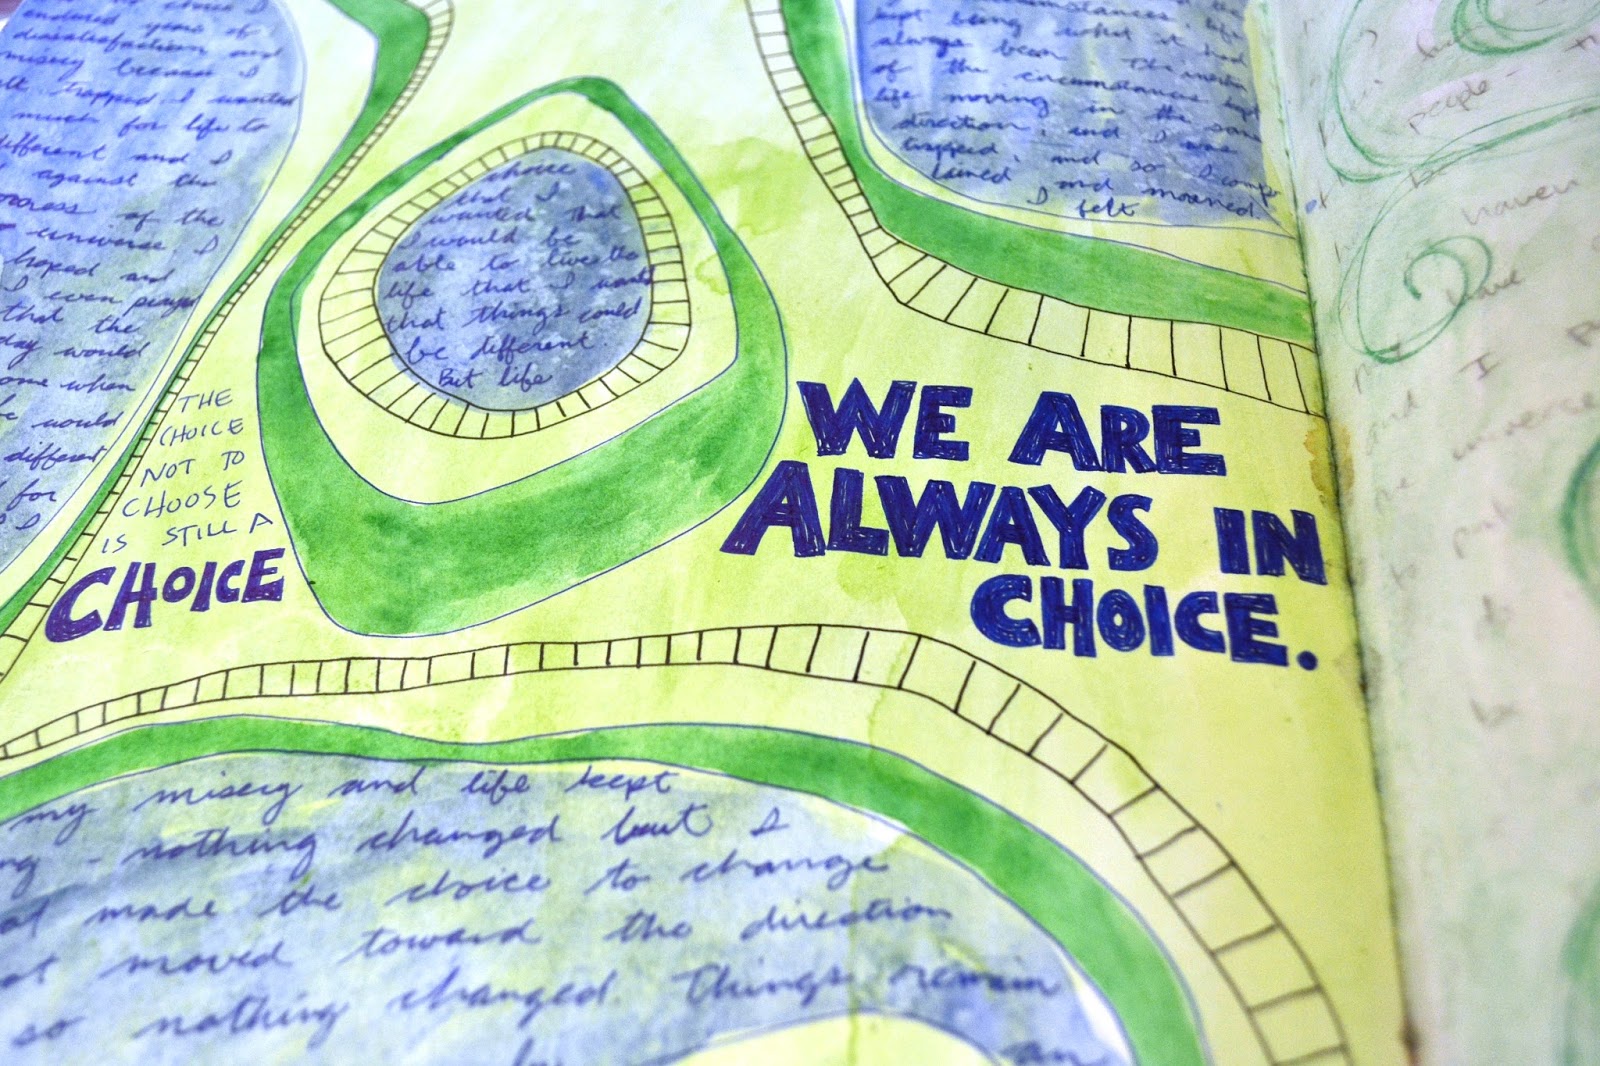 my choice I
endured years of
dissatisfaction and
misery because I
felt trapped. I wanted
much for life to
different and I
against the
process of the
universe. I
hoped and
I even prayed
that the
day would
come when
life would
different
for
I
THE
CHOICE
NOT TO
CHOOSE
IS STILL A
CHOICE
choose
that I
wanted that
I would be
able to live the
life that I would
that things could
be different.
But life
circumstances, life
kept being what it had
always been. The
of the circumstances kept
life moving in the same
direction, and I was
trapped, and so I comp
lained and mourned.
I felt
WE ARE
ALWAYS IN
CHOICE.
my misery and life kept
nothing changed but I
made the choice to change
moved toward the direction
so nothing changed. Things remain
an
people
haven
have
I
and
universe
to
do
be